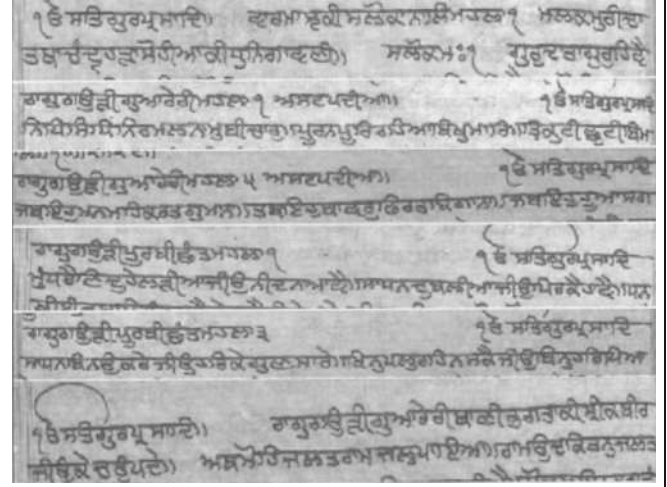 ੴ ਸਤਿਗੁਰਪ੍ਰਸਾਦਿ॥ ਵਾਰਮਾਝਕੀਸਲੋਕਾਨਾਲੀਮਹਲਾ੧ ਮਲਕਮੁਰੀਦਾ
ਤਥਾਚੰਦ੍ਰਹੜਾਸੋਹੀਆਕੀਧੁਨਿਗਾਵਣੀ॥ ਸਲੋਕਮਃ੧ ਗੁਰੁਦਾਤਾਗੁਰੁਹਿਵੈ
ਰਾਗੁਗਉੜੀਗੁਆਰੇਰੀਮਹਲਾ੧ ਅਸਟਪਦੀਆ॥ ੴ ਸਤਿਗੁਰਪ੍ਰਸਾਦਿ
ਨਿਧਿਸਿਧਿਨਿਰਮਲਨਾਮੁਬੀਚਾਰੁ॥ਪੂਰਨਪੂਰਿਰਹਿਆਬਿਖੁਮਾਰਿ॥ਤ੍ਰਿਕੁਟੀਛੂਟੀਬਿਮ
ਰਾਗੁਗਉੜੀਗੁਆਰੇਰੀਮਹਲਾ੫ ਅਸਟਪਦੀਆ॥ ੴ ਸਤਿਗੁਰਪ੍ਰਸਾਦਿ
ਜਬਇਹੁਮਨਮਹਿਕਰਤਗੁਮਾਨਾ॥ਤਬਇਹੁਬਾਵਰੁਫਿਰਤਬਿਗਾਨਾ॥ਜਬਇਹੁਹੂਆਸਗ
ਰਾਗੁਗਉੜੀਪੂਰਬੀਛੰਤਮਹਲਾ੧ ੴ ਸਤਿਗੁਰਪ੍ਰਸਾਦਿ
ਮੁੰਧਰੈਣਿਦੁਹੇਲੜੀਆਜੀਉਨੀਦਨਆਵੈ॥ਸਾਧਨਦੁਬਲੀਆਜੀਉਪਿਰਕੈਹਾਵੈ॥ਧਨ
ਰਾਗੁਗਉੜੀਪੂਰਬੀਛੰਤਮਹਲਾ੩ ੴ ਸਤਿਗੁਰਪ੍ਰਸਾਦਿ
ਸਾਧਨਬਿਨਉਕਰੇਜੀਉਹਰਿਕੇਗੁਣਸਾਰੇ॥ਖਿਨੁਪਲੁਰਹਿਨਸਕੈਜੀਉਬਿਨੁਹਰਿਪਿਆ
ੴ ਸਤਿਗੁਰਪ੍ਰਸਾਦਿ॥ ਰਾਗੁਗਉੜੀਗੁਆਰੇਰੀਬਾਣੀਭਗਤਾਕੀਸ੍ਰੀਕਬੀਰ
ਜੀਉਕੇਚਉਪਦੇ॥ ਅਬਮੋਹਿਜਲਤਰਾਮਜਲੁਪਾਇਆ॥ਰਾਮਉਦਕਿਤਨੁਜਲਤ